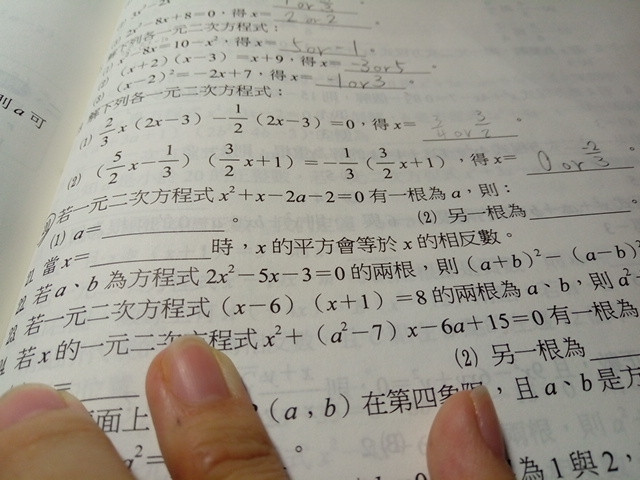 2x²-8x+8=0,得x= 2 or 2 。
解下列各一元二次方程式:
x²-8x=10-x²,得x= 5 or -1 。
(x+2)(x-3)=x+9,得x= -3 or 5 。
(x-2)²=-2x+7,得x= -1 or 3 。
解下列各一元二次方程式:
(1) 2/3 x(2x-3)-1/2(2x-3)=0,得x= 3/4 or 3/2 。
(2) (5/2 x-1/3)(3/2 x+1)=-1/3(3/2 x+1),得x= 0 or -2/3 。
若一元二次方程式x²+x-2a-2=0有一根為a,則:
(1) a=________。 (2) 另一根為________
當x=________時,x的平方會等於x的相反數。
若a、b為方程式2x²-5x-3=0的兩根,則(a+b)²-(a-b)²
若一元二次方程式(x-6)(x+1)=8的兩根為a、b,則a²-
若x的一元二次方程式x²+(a²-7)x-6a+15=0有一根為
=________ (2) 另一根為________
面上 (a,b)在第四象限,且a、b是方
a²= 。
為1與2,
則a可